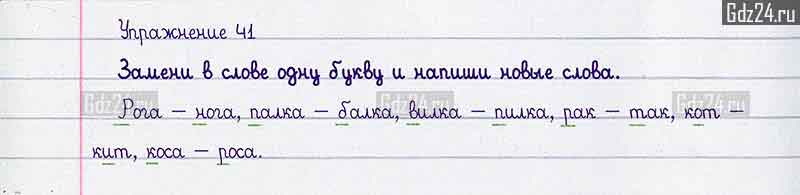 Gdz24.ru
Упражнение 41
Замени в слове одну букву и напиши новые слова.
Рога – нога, палка – балка, вилка – пилка, рак – так, кот –
кит, коса – роса.